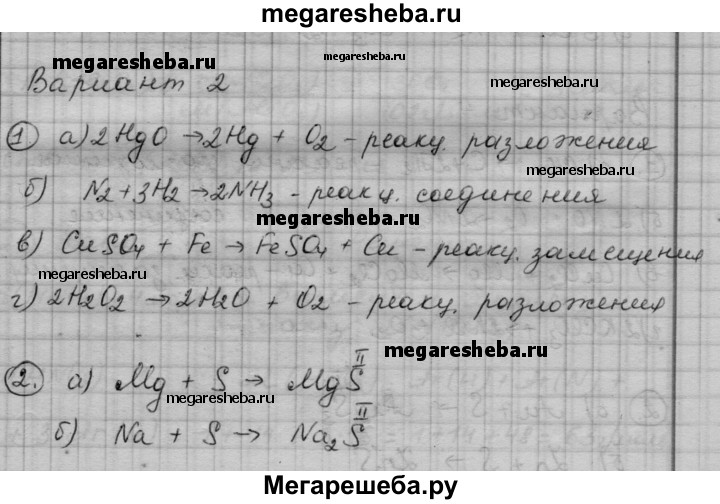 megaresheba.ru
megaresheba.ru
megaresheba.ru
megaresheba.ru
Вариант 2
① а) 2HgO → 2Hg + O₂ – реакц. разложения
megaresheba.ru
б) N₂ + 3H₂ → 2NH₃ – реакц. соединения
megaresheba.ru
в) CuSO₄ + Fe → FeSO₄ + Cu – реакц. замещения
megaresheba.ru
г) 2H₂O₂ → 2H₂O + O₂ – реакц. разложения
megaresheba.ru
II
②. а) Mg + S → MgS
megaresheba.ru
II
б) Na + S → Na₂S
Мегарешеба.ру